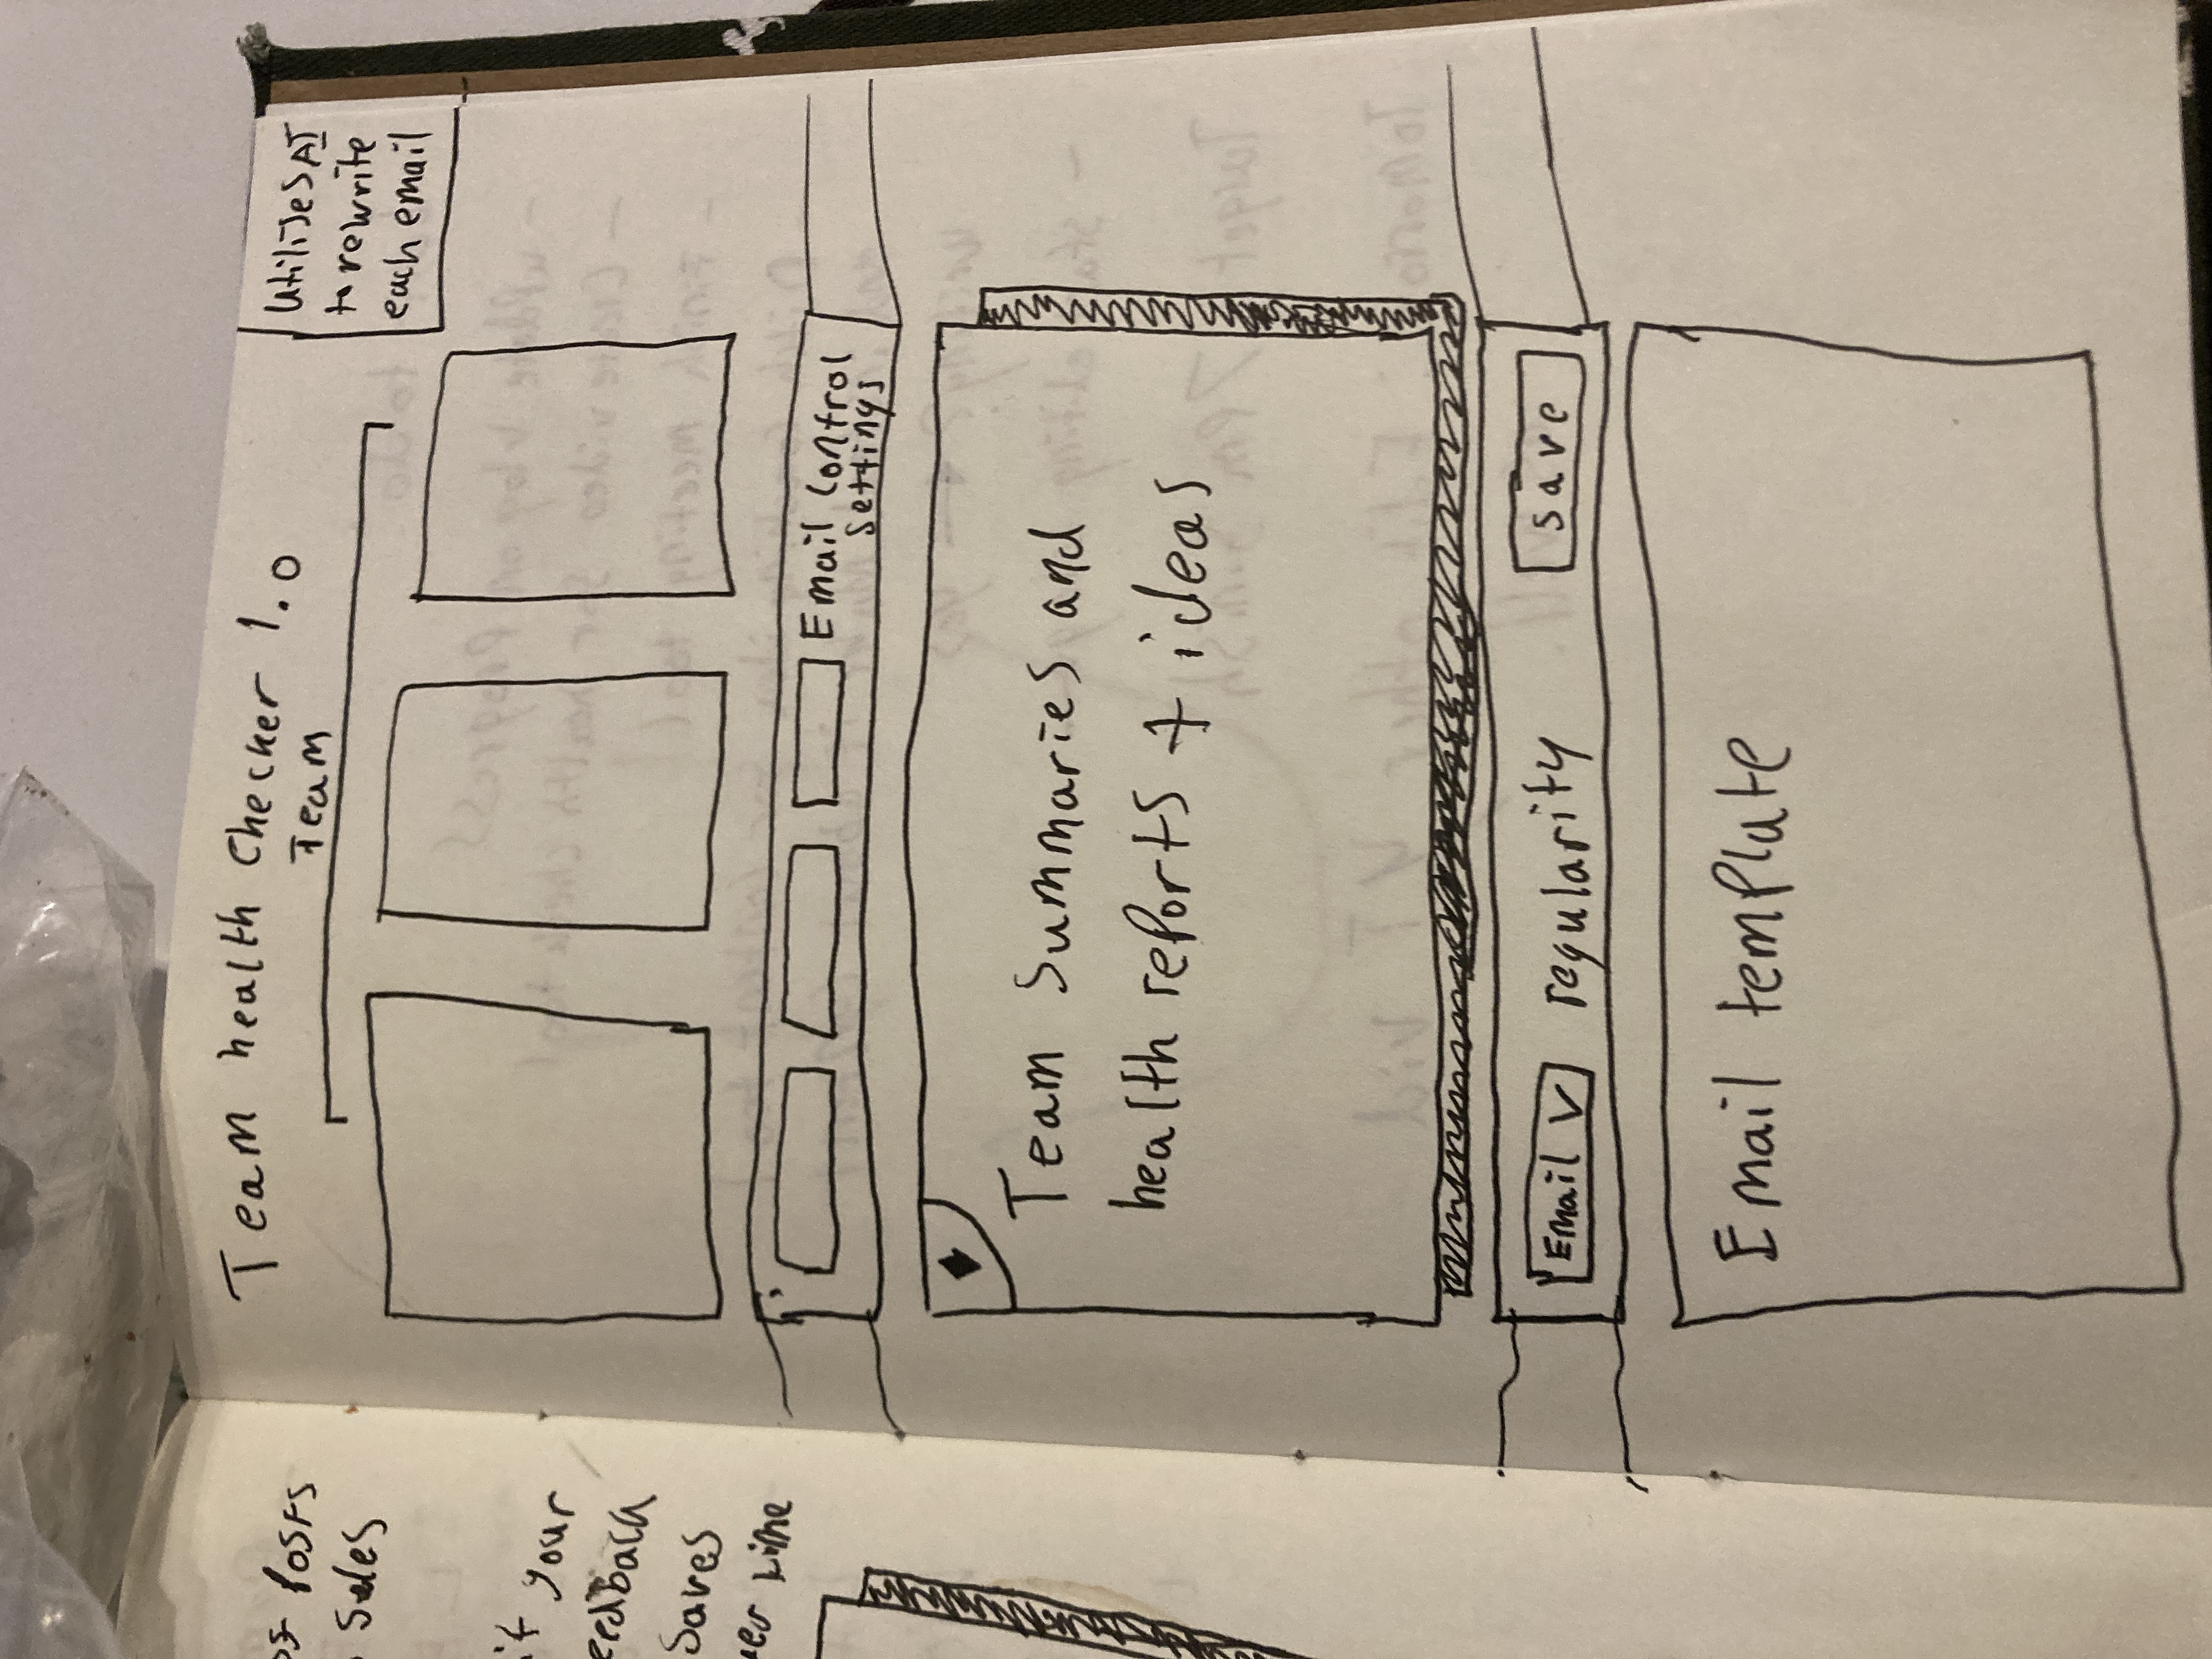 Team health Checker 1.0
Team
UtilisesAI
to rewrite
each email
Email Control
Settings
Team Summaries and
health reports + ideas
Email V regularity save
Email template
Posts
Sales
it your
feedback
Saves